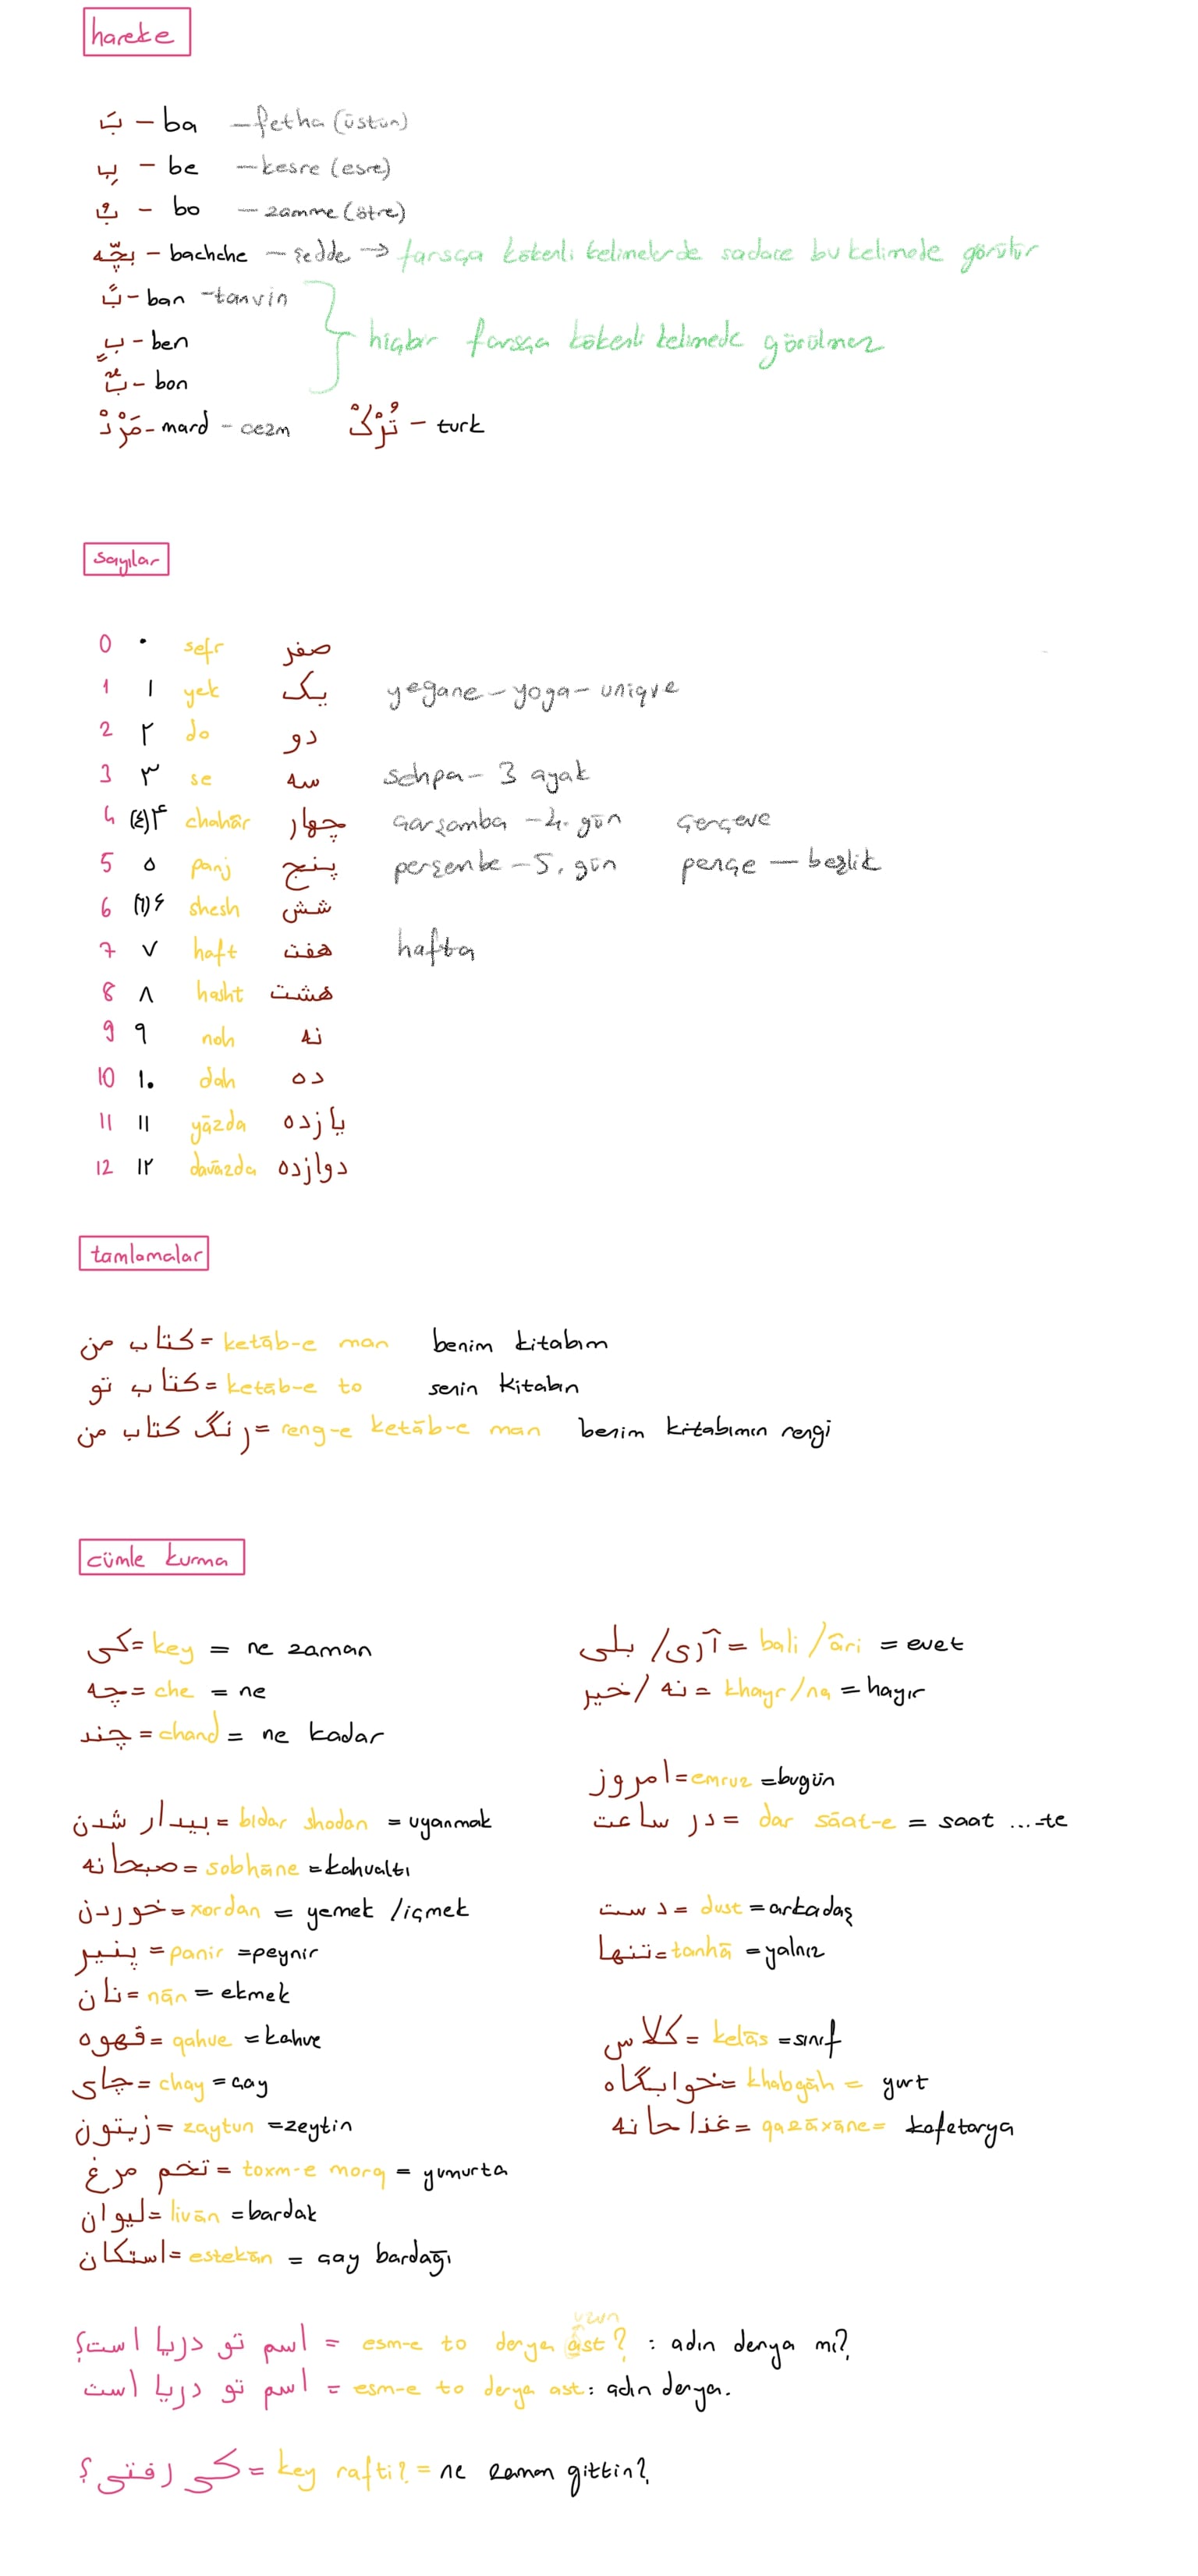 hareke
بَ – ba – fetha (üstün)
بِ – be – kesre (esre)
بُ – bo – zamme (ötre)
بچّه – bachche – şedde → farsça kökenli kelimelerde sadece bu kelimede görülür
بً – ban – tanvin
بٍ – ben
بٌ – bon
hiçbir farsça kökenli kelimede görülmez
مَرْدْ – mard – cezm تُرْکْ – turk
sayılar
0 ۰ sefr صفر
1 ۱ yek یک yegane – yoga – unique
2 ۲ do دو
3 ۳ se سه sehpa – 3 ayak
4 (٤) ۴ chahār چهار çarşamba – 4. gün çerçeve
5 ۵ panj پنج perşenbe – 5. gün pençe – beşlik
6 (٦) ۶ shesh شش
7 ۷ haft هفت hafta
8 ۸ hasht هشت
9 ۹ noh نه
10 ۱۰ dah ده
11 ۱۱ yāzda یازده
12 ۱۲ davāzda دوازده
tamlamalar
کتاب من = ketāb-e man benim kitabım
کتاب تو = ketāb-e to senin kitabın
رنگ کتاب من = reng-e ketāb-e man benim kitabımın rengi
cümle kurma
کی = key = ne zaman
چه = che = ne
چند = chand = ne kadar
بیدار شدن = bıdar shodan = uyanmak
صبحانه = sobhāne = kahvaltı
خوردن = xordan = yemek / içmek
پنیر = panir = peynir
نان = nān = ekmek
قهوه = qahve = kahve
چای = chay = çay
زیتون = zaytun = zeytin
تخم مرغ = toxm-e morq = yumurta
لیوان = livān = bardak
استکان = estekān = çay bardağı
آری / بلی = bali / āri = evet
نه / خیر = khayr / na = hayır
امروز = emruz = bugün
در ساعت = dar sāat-e = saat ...-te
دست = dust = arkadaş
تنها = tanhā = yalnız
کلاس = kelās = sınıf
خوابگاه = khabgāh = yurt
غذا حانه = qazāxāne = kafetarya
uzun
اسم تو دریا است؟ = esm-e to derya ast? : adın derya mı?
اسم تو دریا است = esm-e to derya ast : adın derya.
کی رفتی؟ = key rafti? = ne zaman gittin?